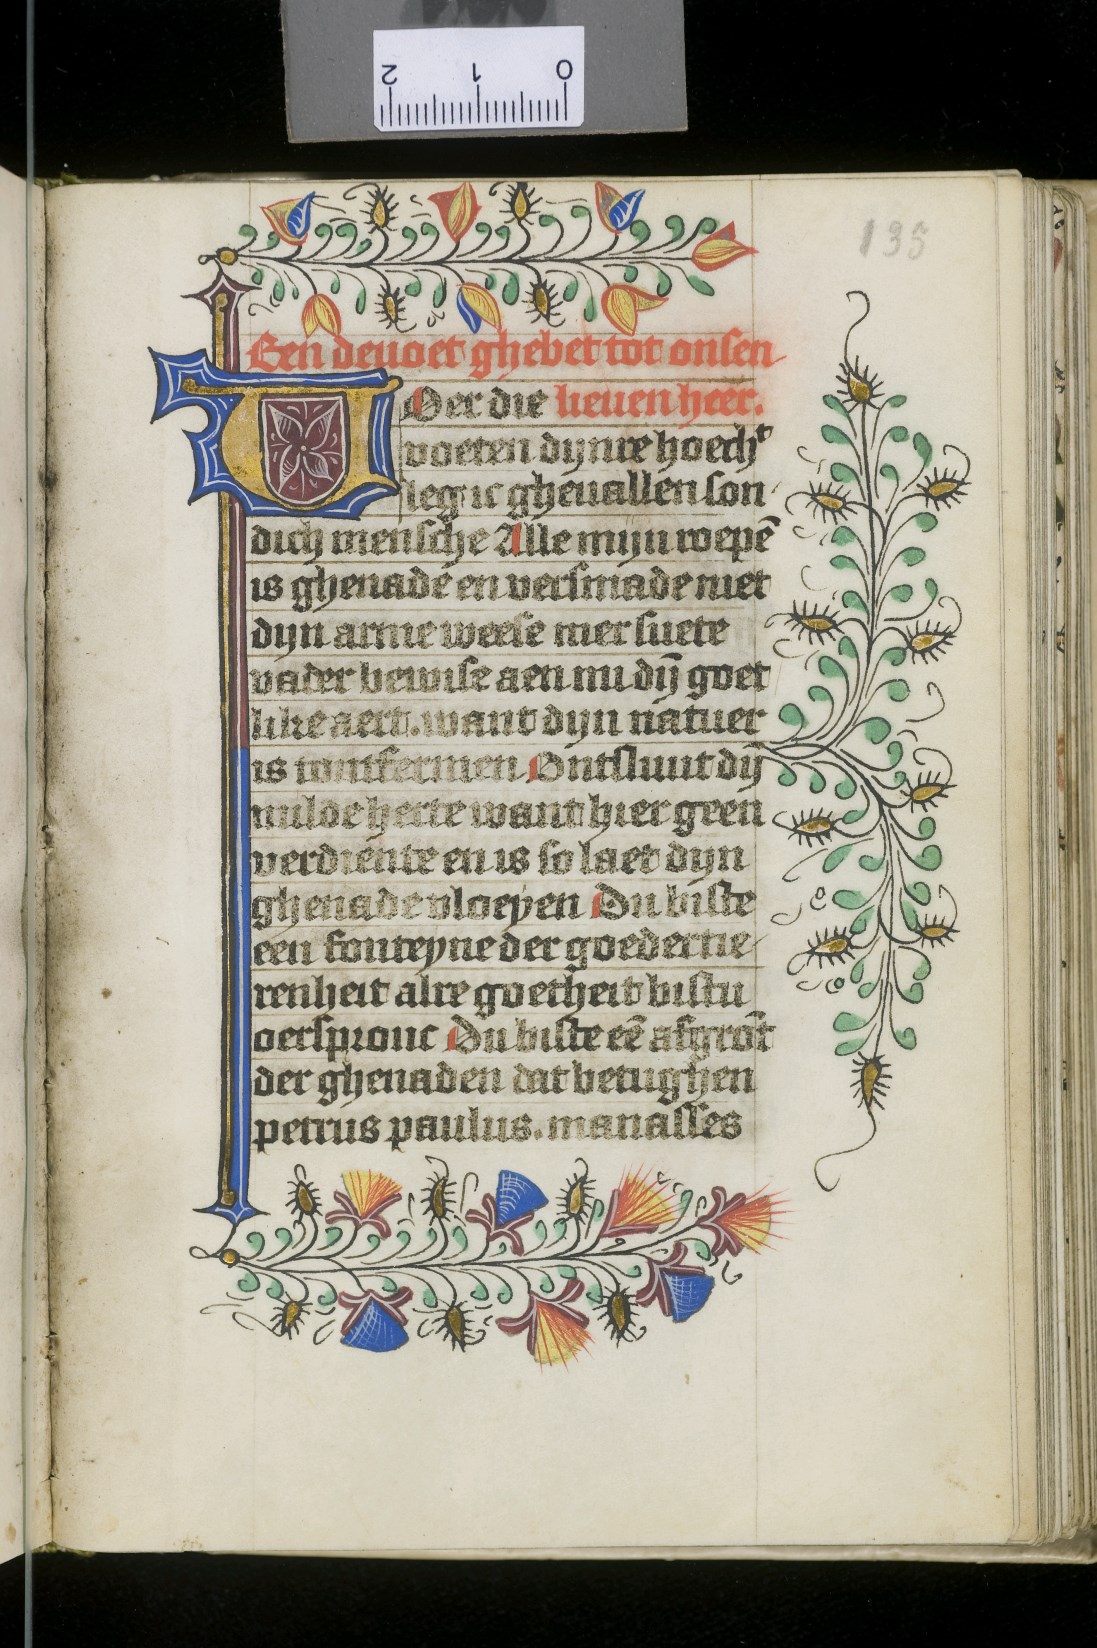 2 1 0
135
Een deuoet ghebet tot onsen
Voer die lieuen heer.
voeten dynre hoechᵗ
leg ic gheuallen son
dich mensche Alle mijn roepē
is ghenade en versmade niet
dijn arme weese mer suete
vader bewise aen mi dij̄ goet
like aert. want dijn natuer
is tontfermen Ontsluut dij̄
milde herte want hier geen
verdiente en is so laet dijn
ghenade vloeyen Du biste
een fonteyne der goedertie-
renheit alre goetheit bistu
oerspronc Du biste eē afgrōt
der ghenaden dat betughen
petrus paulus. manasses